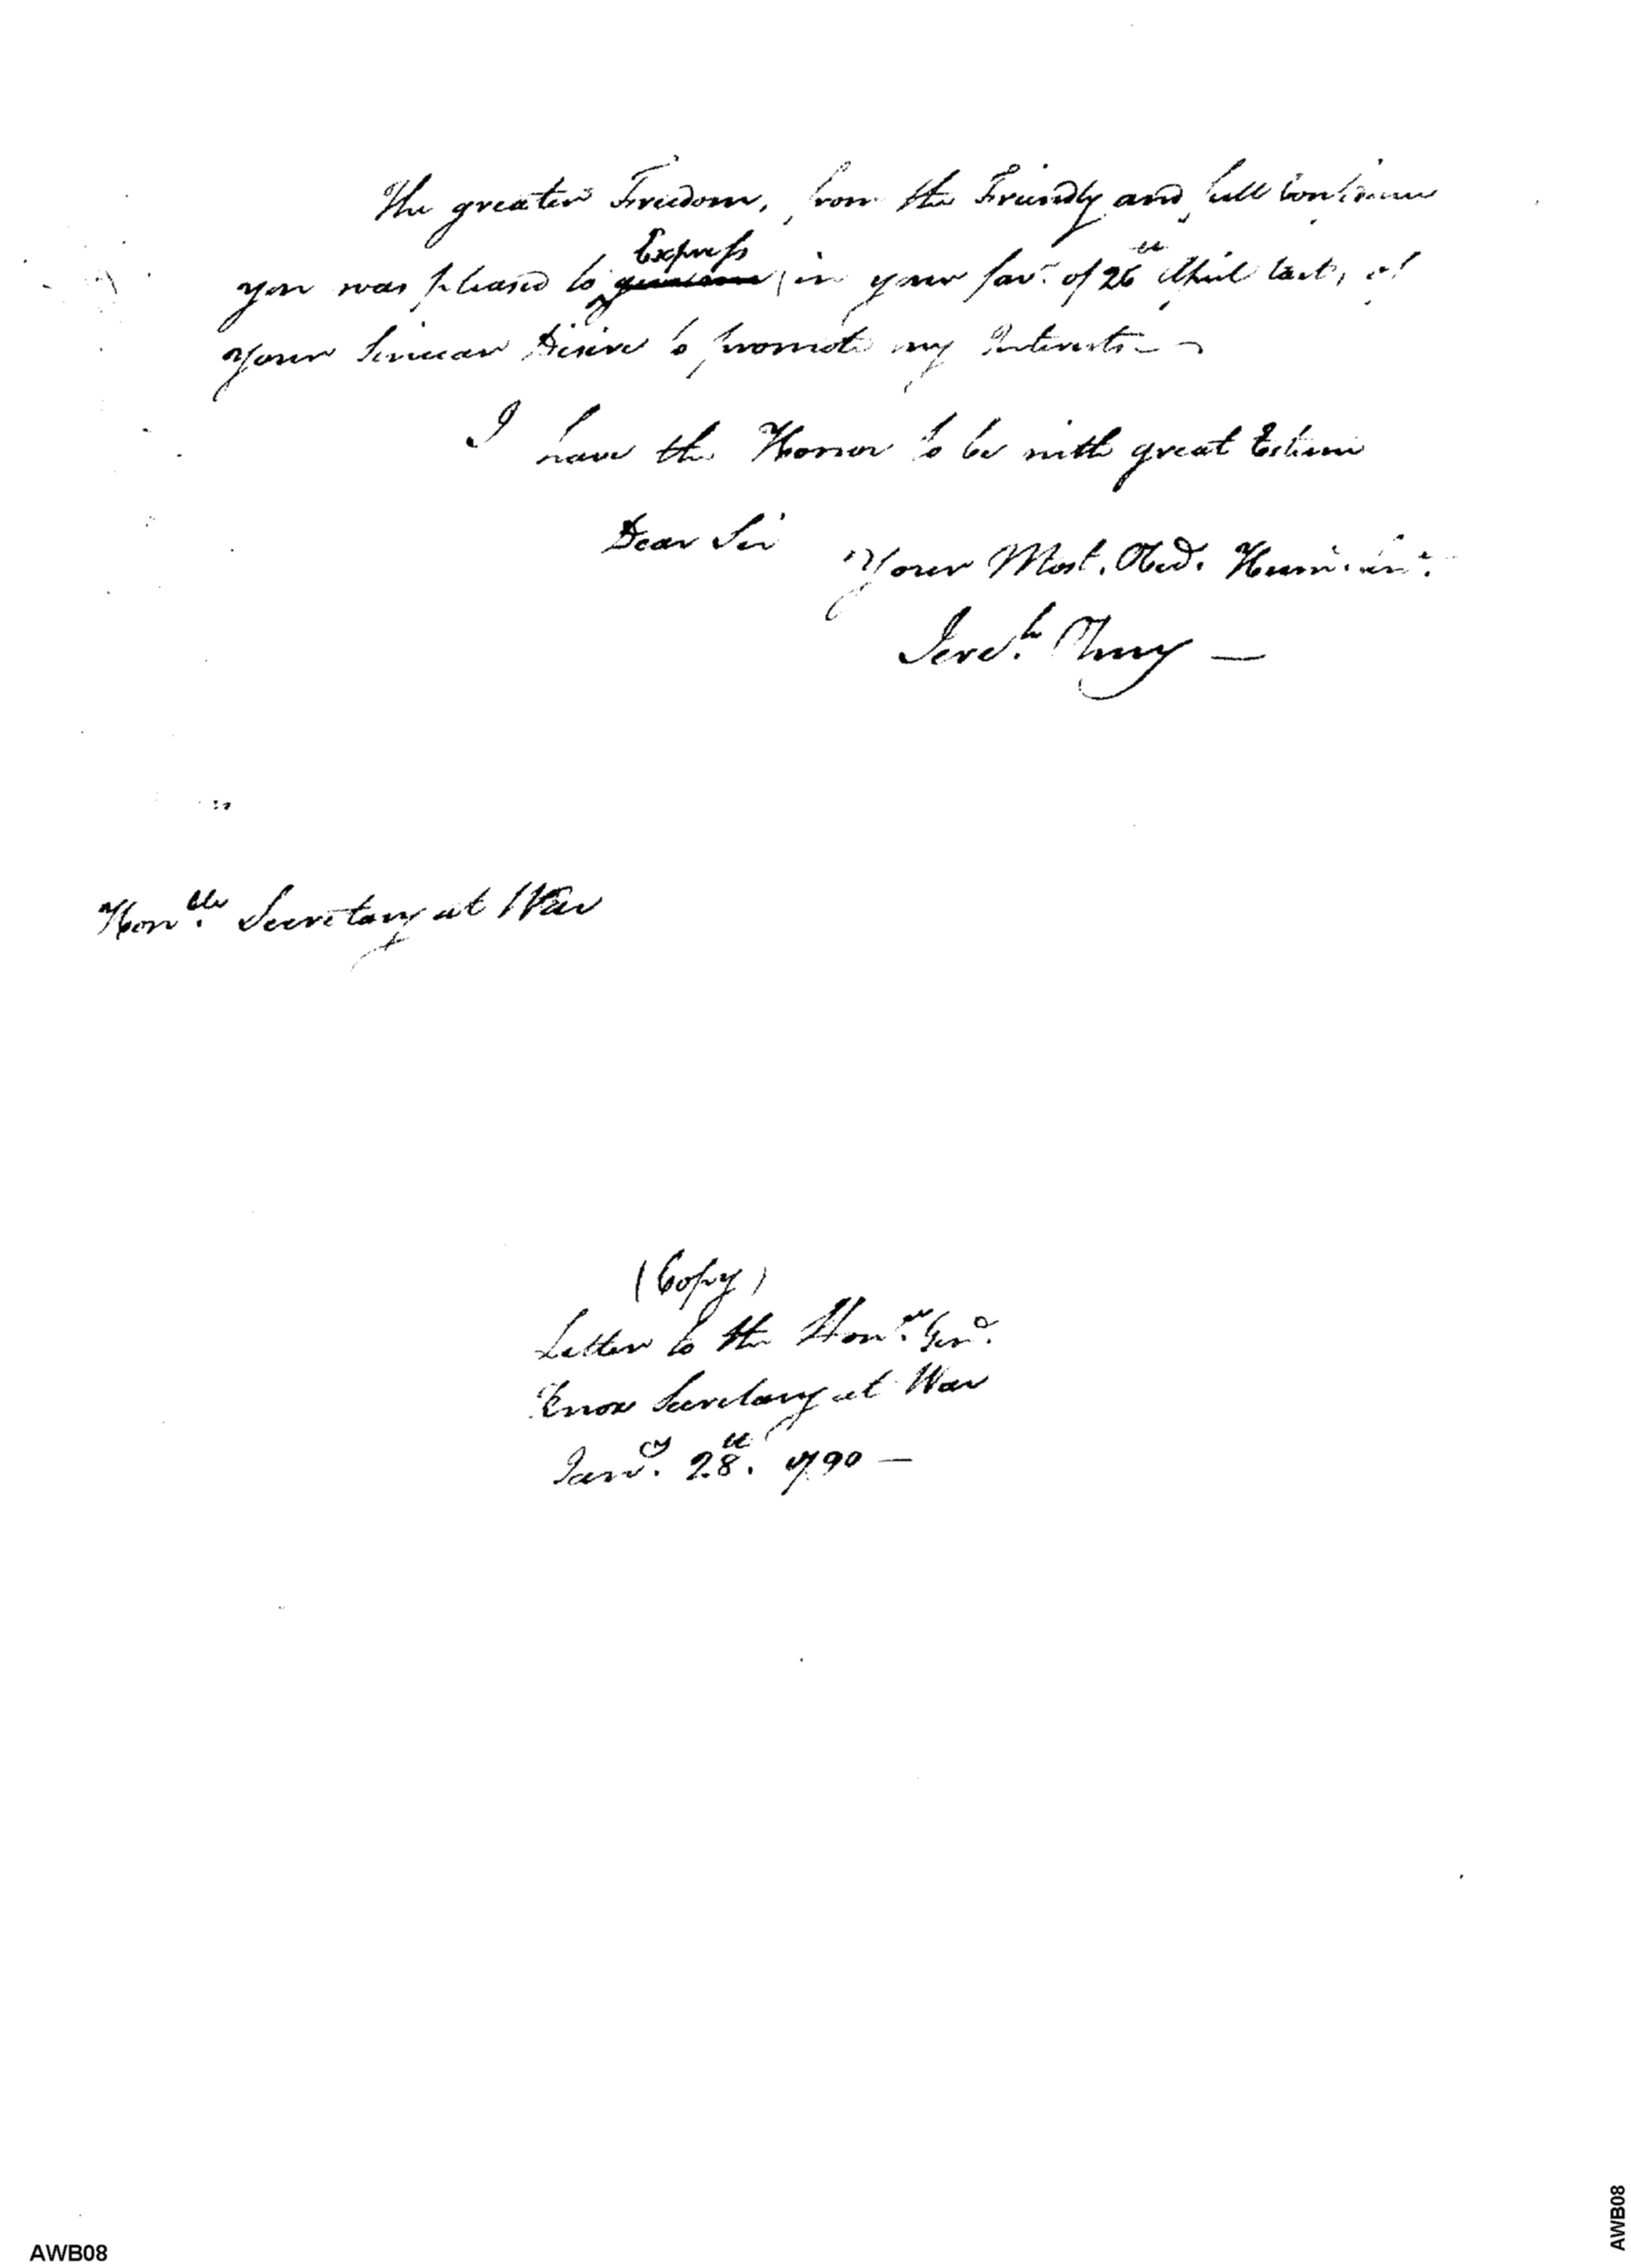 The greater Freedom, from the Friendly and full
Express
you was pleased to in your fav.r of 26th April last, of
your Sincear Desire to promote my Interests—
I have the Honor to be with great Esteem
Dear Sir
Your Most. Obed. Hum.
Jere.h Olney —
Hon.ble Secretary at War
(Copy)
Letter to the Hon.e Gen.l
Knox Secretary at War
Jan.y 28.th 1790 —
AWB08
AWB08